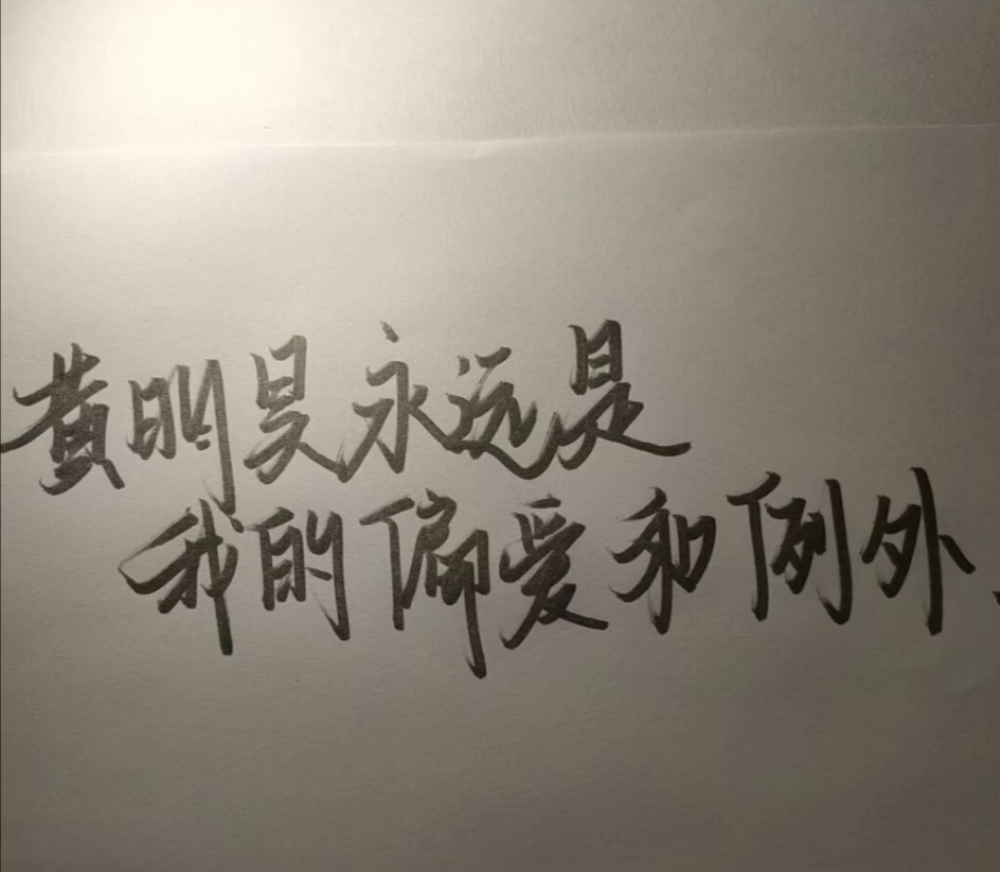 黄明昊永远是
我的偏爱和例外